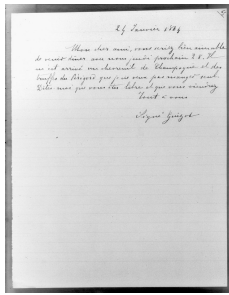 25 Janvier 1884
Mon cher ami, vous seriez bien aimable
de venir dîner avec nous jeudi prochain 28. Il
m'est arrivé un chevreuil de Champagne et des
truffes du Périgord que je ne veux pas manger seul.
Dites moi que vous êtes libre et que vous viendrez
Tout à vous
Signé Guizot